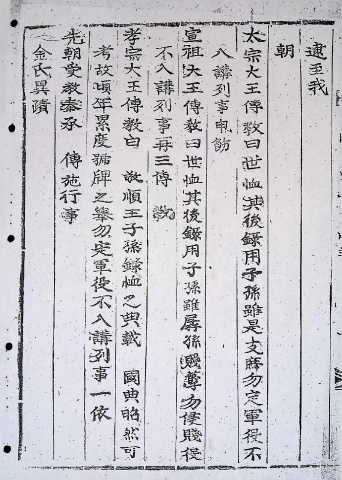 逮至我
朝
太宗大王傳敎曰世恤其後錄用子孫雖是支庶勿定軍役不
入講列事申飭
宣祖大王傳敎曰世恤其後錄用子孫雖孱孫賤孽勿侵賤役
不入講列事再三傳敎
孝宗大王傳敎曰 敬順王子孫錄恤之典載 國典昭然可
考故頃年累度號牌之擧勿定軍役不入講列事一依
先朝受敎奉承 傳施行事
金氏異蹟